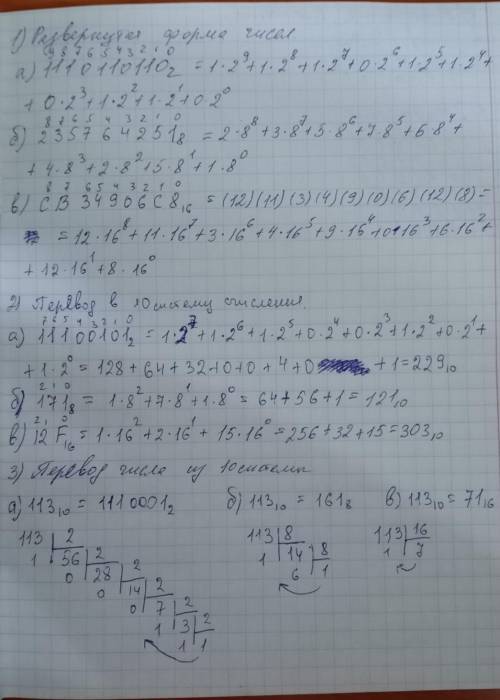 1) Развернутая форма чисел
9 8 7 6 5 4 3 2 1 0
а) 1110110110₂ = 1·2⁹+1·2⁸+1·2⁷+0·2⁶+1·2⁵+1·2⁴+
+ 0·2³+1·2²+1·2¹+0·2⁰
8 7 6 5 4 3 2 1 0
б) 235764251₈ = 2·8⁸+3·8⁷+5·8⁶+7·8⁵+6·8⁴+
+ 4·8³+2·8²+5·8¹+1·8⁰
8 7 6 5 4 3 2 1 0
в) CB34906C8₁₆ = (12)(11)(3)(4)(9)(0)(6)(12)(8)=
= 12·16⁸+11·16⁷+3·16⁶+4·16⁵+9·16⁴+0·16³+6·16²+
+ 12·16¹+8·16⁰
2) Перевод в 10 систему счисления.
7 6 5 4 3 2 1 0
а) 11100101₂ = 1·2⁷+1·2⁶+1·2⁵+0·2⁴+0·2³+1·2²+0·2¹+
+1·2⁰= 128+64+32+0+0+4+0 +1=229₁₀
2 1 0
б) 171₈ = 1·8²+7·8¹+1·8⁰= 64+56+1=121₁₀
2 1 0
в) 12F₁₆ = 1·16²+2·16¹+15·16⁰=256+32+15=303₁₀
3) Перевод числа из 10 системы
а) 113₁₀ = 1110001₂ б) 113₁₀=161₈ в) 113₁₀=71₁₆
113 2 113 8 113 16
1 56 2 1 14 8 1 7
0 28 2 6 1
0 14 2
0 7 2
1 3 2
1 1